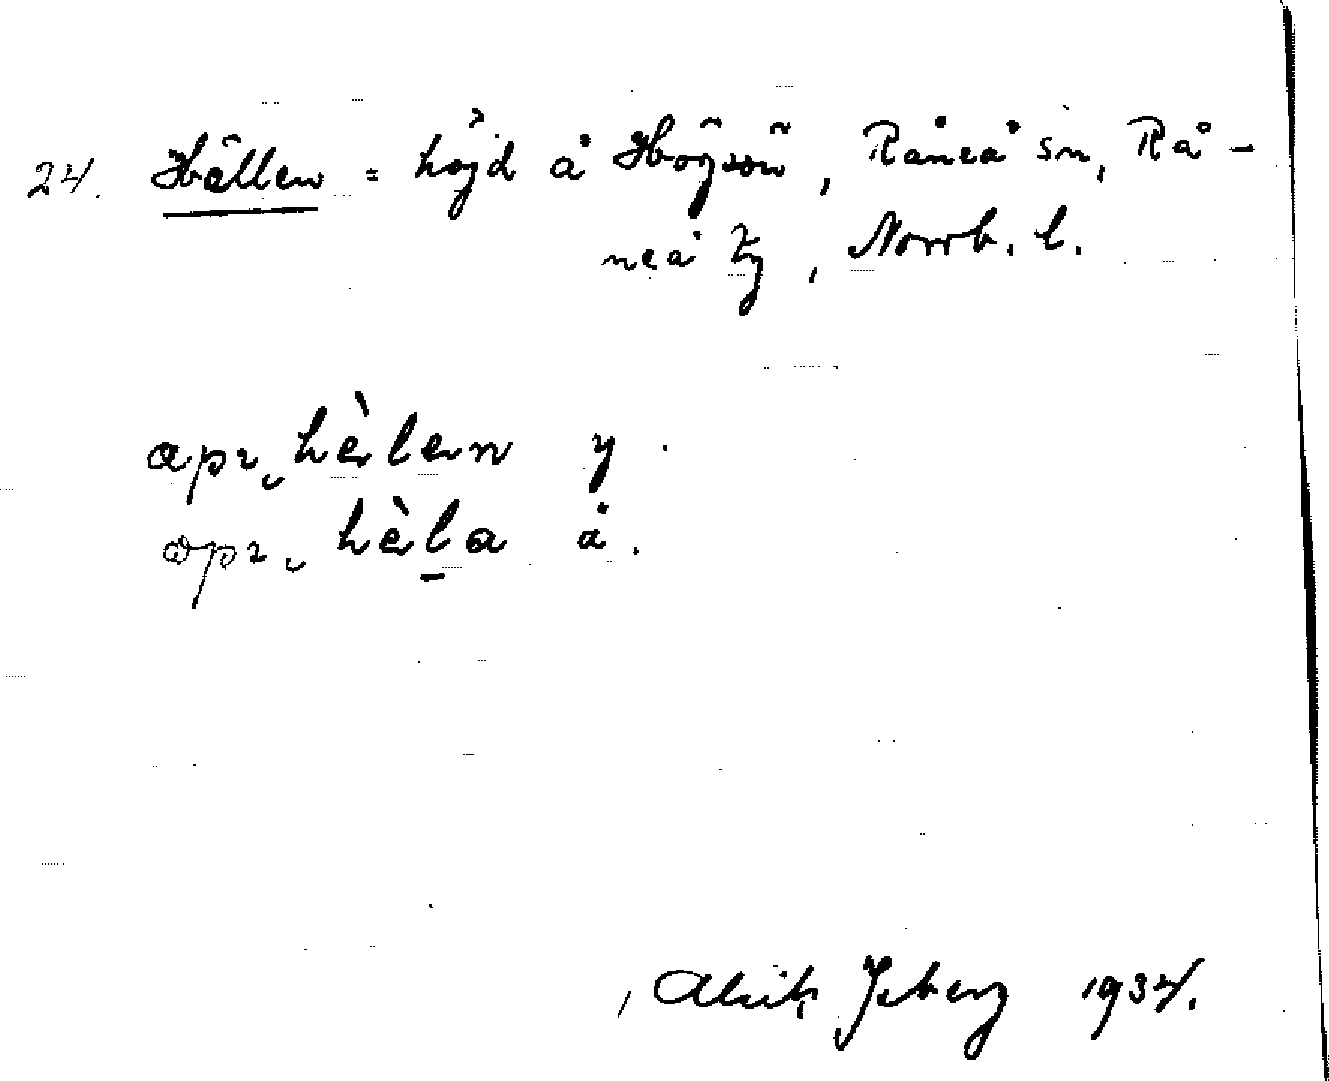 24. Hällen = höjd å Högsön, Råneå sn, Rå-
neå tg, Norrb. l.
apr. hèlen y.
opr. hèla å.
1934.